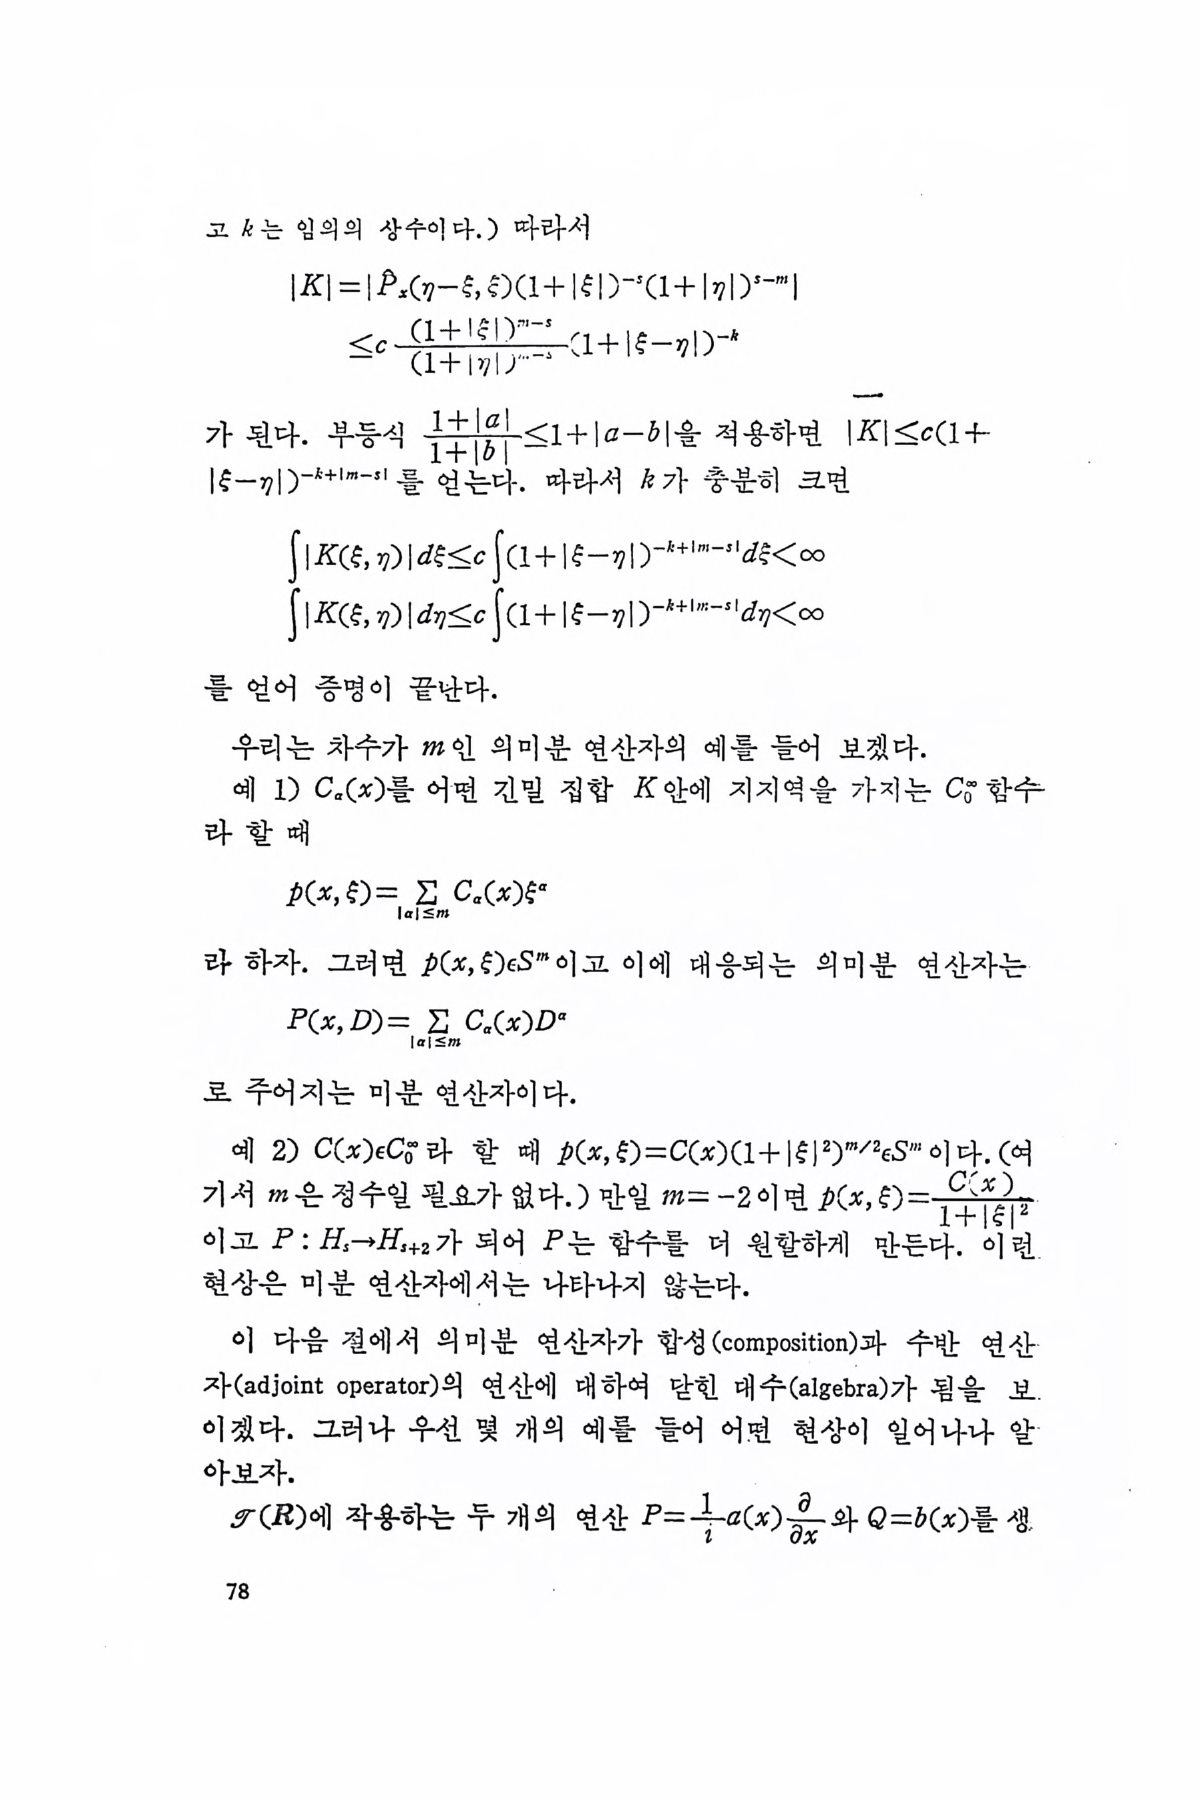 고 k는 임의의 상수이다.) 따라서
|K|=|P̂ₓ(η−ξ, ξ)(1+|ξ|)⁻ˢ(1+|η|)ˢ⁻ᵐ|
≤c (1+|ξ|)ᵐ⁻ˢ/(1+|η|)ᵐ⁻ˢ (1+|ξ−η|)⁻ᵏ
가 된다. 부등식 (1+|a|)/(1+|b|) ≤1+|a−b|을 적용하면 |K|≤c(1+
|ξ−η|)^{−k+|m−s|}를 얻는다. 따라서 k가 충분히 크면
∫|K(ξ, η)|dξ≤c∫(1+|ξ−η|)^{−k+|m−s|}dξ<∞
∫|K(ξ, η)|dη≤c∫(1+|ξ−η|)^{−k+|m−s|}dη<∞
를 얻어 증명이 끝난다.
우리는 차수가 m인 의미분 연산자의 예를 들어 보겠다.
예 1) C_α(x)를 어떤 긴밀 집합 K안에 지지역을 가지는 C₀^∞ 함수
라 할 때
p(x, ξ)= ∑_{|α|≤m} C_α(x)ξ^α
라 하자. 그러면 p(x, ξ)ϵSᵐ이고 이에 대응되는 의미분 연산자는
P(x, D)= ∑_{|α|≤m} C_α(x)D^α
로 주어지는 미분 연산자이다.
예 2) C(x)ϵC₀^∞라 할 때 p(x, ξ)=C(x)(1+|ξ|²)^{m/2}ϵSᵐ이다. (여
기서 m은 정수일 필요가 없다.) 만일 m=−2이면 p(x, ξ)= C(x)/(1+|ξ|²)
이고 P : H_s→H_{s+2}가 되어 P는 함수를 더 원할하게 만든다. 이런
현상은 미분 연산자에서는 나타나지 않는다.
이 다음 절에서 의미분 연산자가 합성(composition)과 수반 연산
자(adjoint operator)의 연산에 대하여 닫힌 대수(algebra)가 됨을 보
이겠다. 그러나 우선 몇 개의 예를 들어 어떤 현상이 일어나나 알
아보자.
𝒯(R)에 작용하는 두 개의 연산 P= 1/i a(x) ∂/∂x 와 Q=b(x)를 생
78